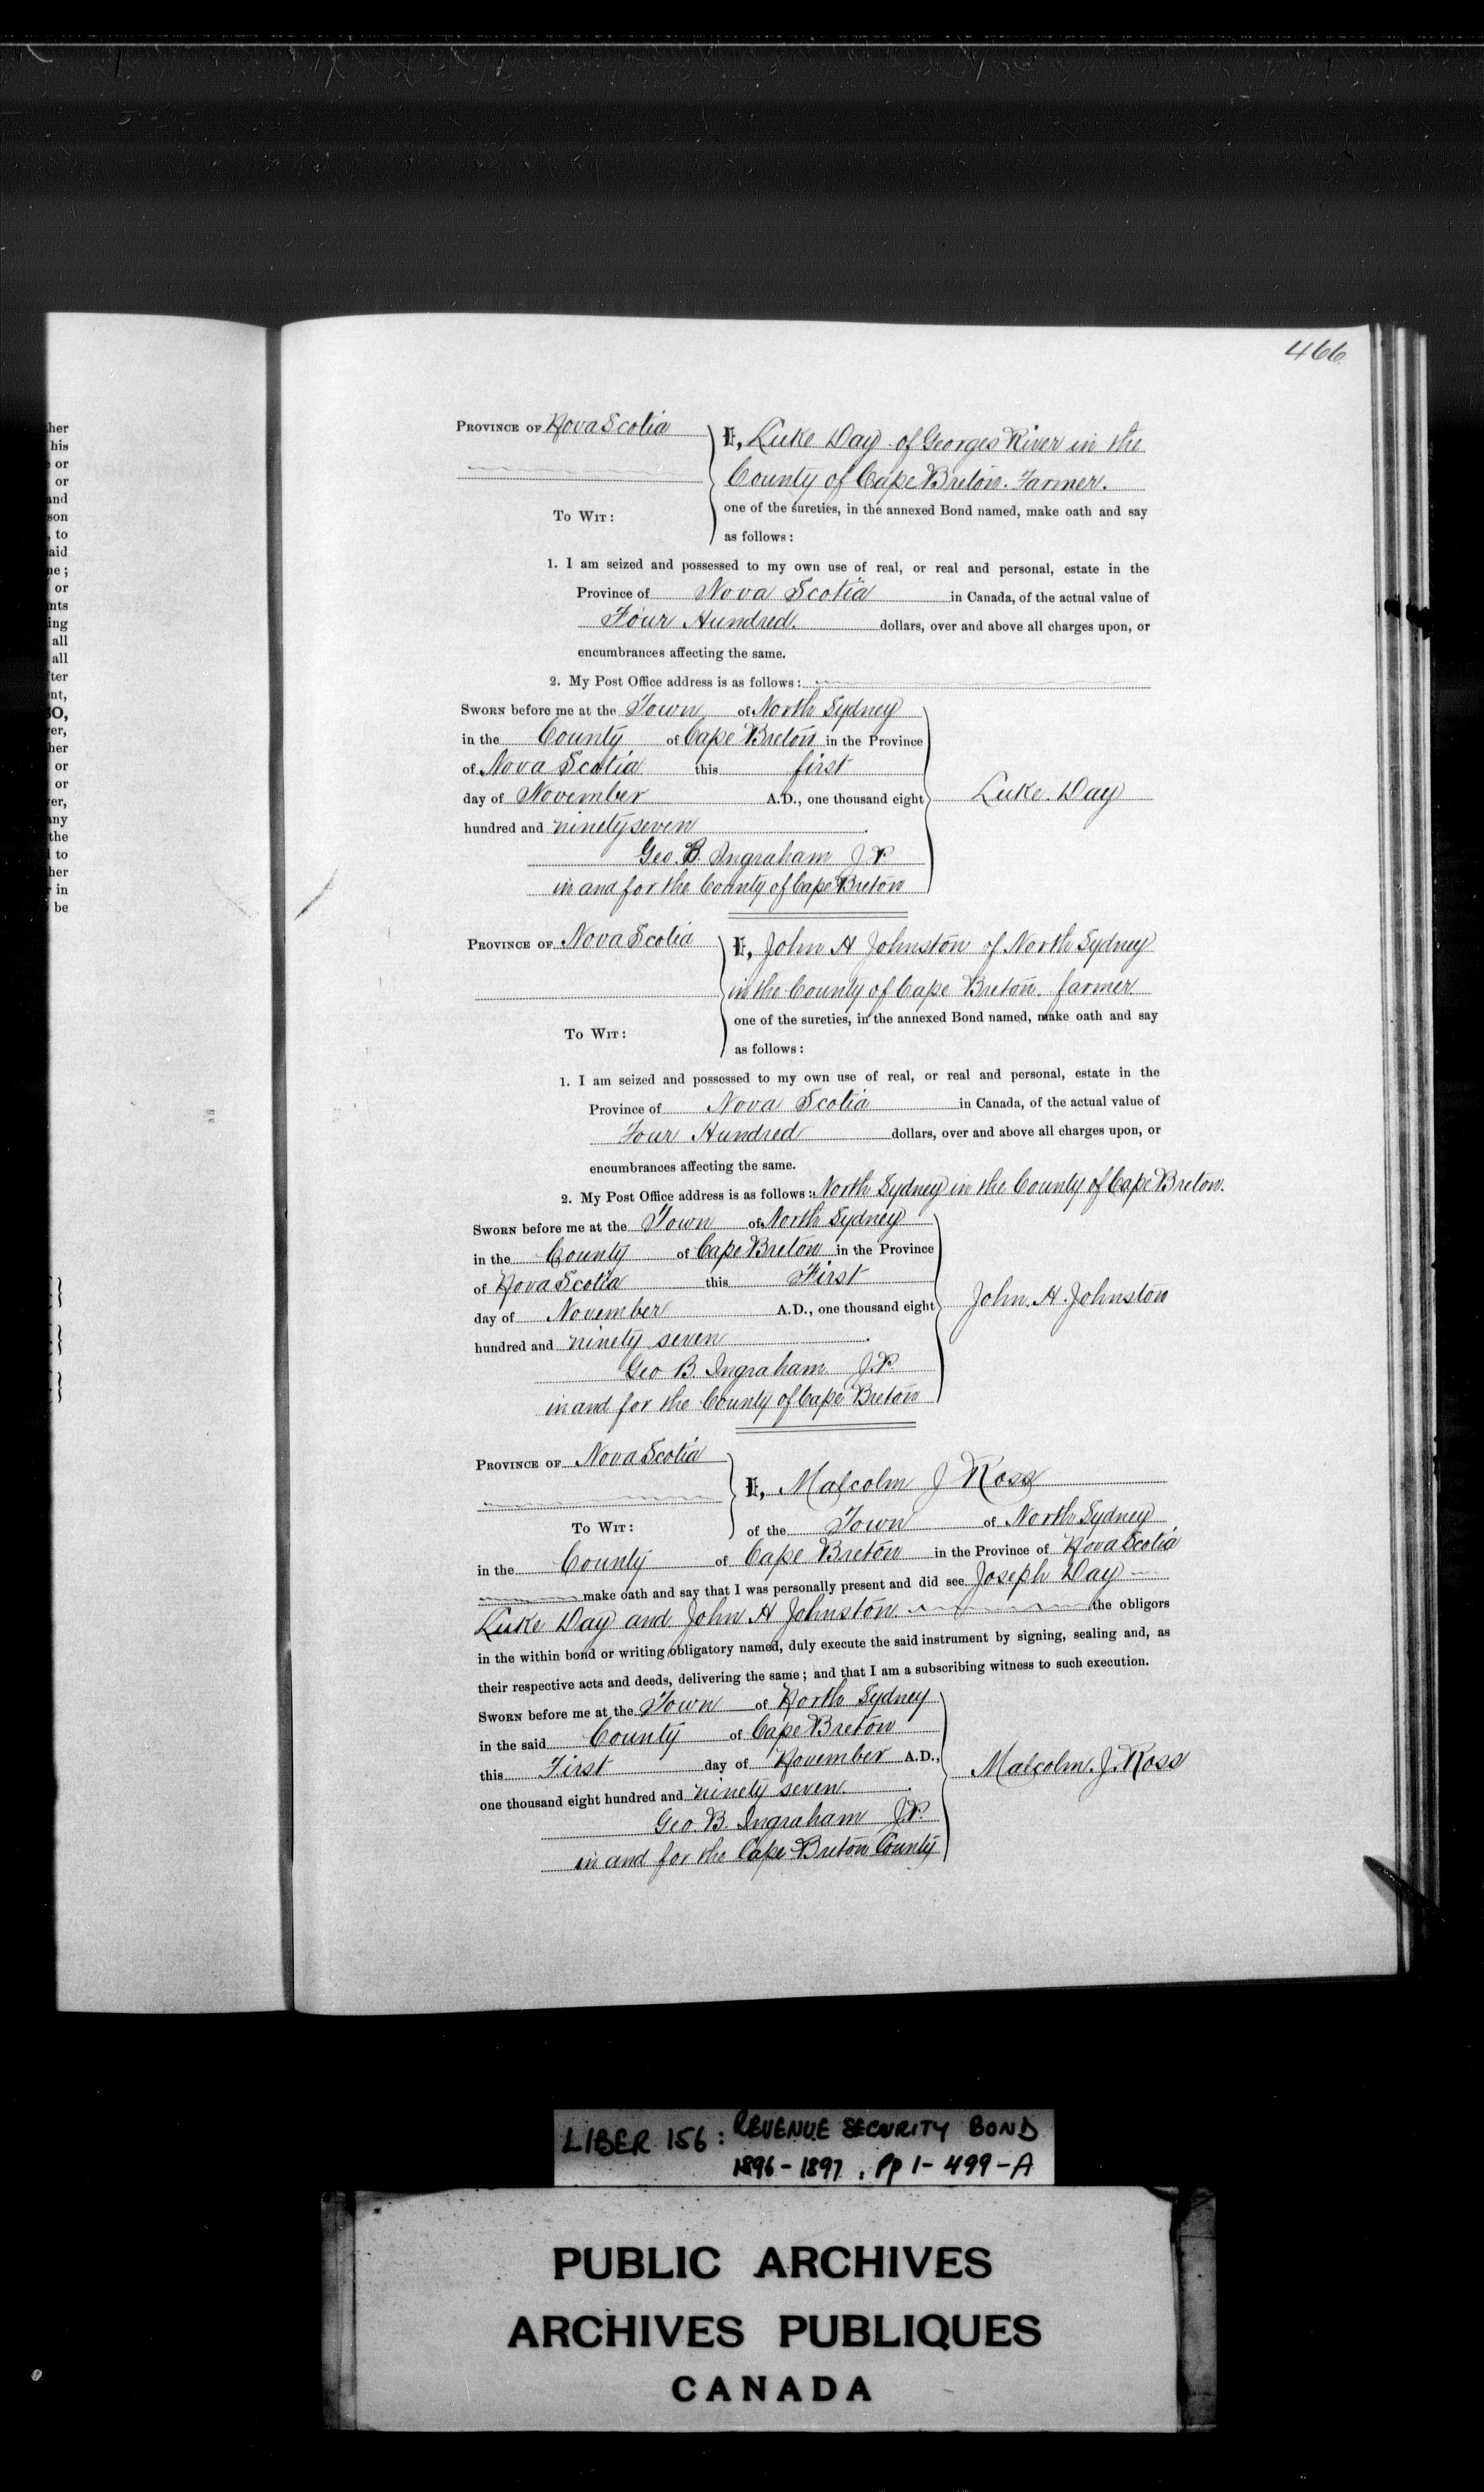 466
her
his
or
or
and
son
, to
aid
ne ;
or
nts
ing
all
all
ter
nt,
SO,
er,
her
or
or
er,
any
the
to
her
in
be
PROVINCE OF Nova Scotia
I, Luke Day of Georges River in the
County of Cape Breton. Farmer.
TO WIT:
one of the sureties, in the annexed Bond named, make oath and say
as follows:
1. I am seized and possessed to my own use of real, or real and personal, estate in the
Province of Nova Scotia in Canada, of the actual value of
Four Hundred. dollars, over and above all charges upon, or
encumbrances affecting the same.
2. My Post Office address is as follows:
SWORN before me at the Town of North Sydney
in the County of Cape Breton in the Province
of Nova Scotia this first
day of November A.D., one thousand eight
hundred and ninety seven.
Luke. Day
Geo. B. Ingraham J.P.
in and for the County of Cape Breton
PROVINCE OF Nova Scotia
I, John H Johnston of North Sydney
in the County of Cape Breton. farmer.
TO WIT:
one of the sureties, in the annexed Bond named, make oath and say
as follows:
1. I am seized and possessed to my own use of real, or real and personal, estate in the
Province of Nova Scotia in Canada, of the actual value of
Four Hundred dollars, over and above all charges upon, or
encumbrances affecting the same.
2. My Post Office address is as follows: North Sydney in the County of Cape Breton.
SWORN before me at the Town of North Sydney
in the County of Cape Breton in the Province
of Nova Scotia this First
day of November A.D., one thousand eight
hundred and ninety seven.
John. H. Johnston
Geo B. Ingraham. J.P.
in and for the County of Cape Breton
PROVINCE OF Nova Scotia
I, Malcolm J Ross
TO WIT:
of the Town of North Sydney
in the County of Cape Breton in the Province of Nova Scotia
make oath and say that I was personally present and did see Joseph Day
Luke Day and John H Johnston. the obligors
in the within bond or writing obligatory named, duly execute the said instrument by signing, sealing and, as
their respective acts and deeds, delivering the same; and that I am a subscribing witness to such execution.
SWORN before me at the Town of North Sydney
in the said County of Cape Breton
this First day of November A.D.,
one thousand eight hundred and ninety seven.
Malcolm. J. Ross
Geo. B. Ingraham J.P.
in and for the Cape Breton County
LIBER 156: REVENUE SECURITY BOND
1896-1897, Pp 1-499-A
PUBLIC ARCHIVES
ARCHIVES PUBLIQUES
CANADA